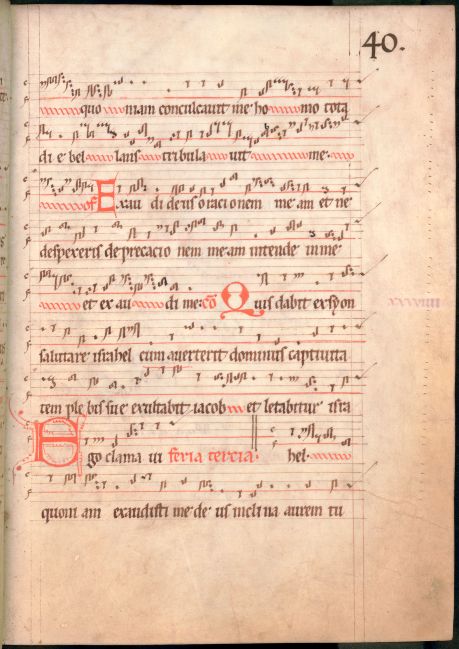 40.
quo niam conculcauit me ho mo tota
di e bel lans tribula uit me
of Exau di deus oracionem me am et ne
despexeris de precacio nem me am intende in me
et ex au di me: co Quis dabit ex syon
salutare israhel cum auerterit dominus captiuita
tem ple bis sue exultabit iacob et letabitur isra
Ego clama ui feria tercia. hel.
quoni am exaudisti me de us inclina aurem tu